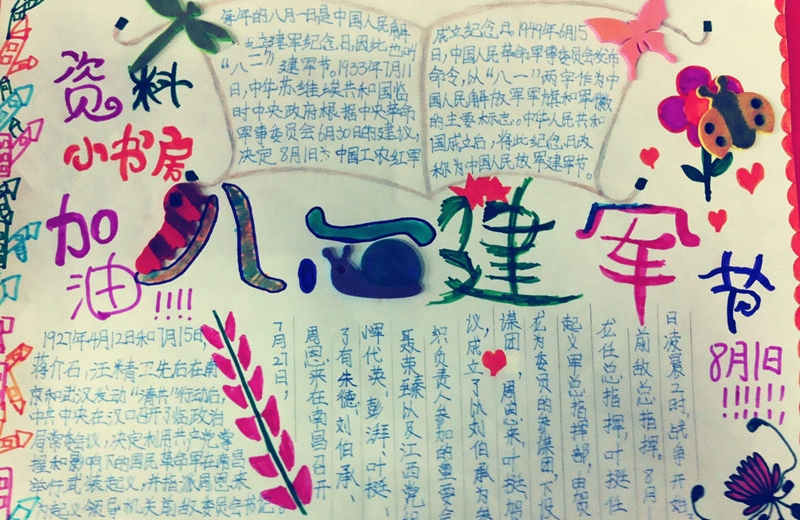 资料
小书房
加油
!!!!
每年的八月一日是中国人民解
建军纪念日,因此也叫
“八一”建军节。1933年7月11
日,中华苏维埃共和国临
时中央政府根据中央革命
军事委员会6月30日的建议,
决定8月1日为中国工农红军
成立纪念日。1949年6月15
日,中国人民革命军事委员会发布
命令,以“八一”两字作为中
国人民解放军军旗和军徽
的主要标志。中华人民共和
国成立后,将此纪念日改
称为中国人民解放军建军节。
八一建军
节
8月1日
!!!!!!
1927年4月12日和7月15日,
蒋介石,汪精卫先后在南
京和武汉发动“清共”行动后,
中共中央在汉口召开了临政治
局常委会议,决定利用共产党掌
握和影响下的国民革命军在南昌
举行武装起义,并指派周恩来
为起义领导机关前敌委员会书记。
7月27日,
周恩来在南昌召开
了有朱德、刘伯承、
恽代英、彭湃、叶挺、
聂荣臻以及江西党组
织负责人参加的重要会
议,成立了以刘伯承为参
谋团,周恩来、叶挺、贺
龙为委员的参谋团,下设
起义军总指挥部,由贺
龙任总指挥,叶挺任
前敌总指挥。8月1
日凌晨2时,战争开始,